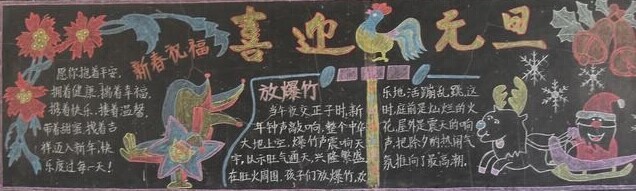 喜迎元旦
新春祝福
愿你抱着平安,
拥着健康,揣着幸福,
携着快乐,搂着温馨,
带着甜蜜,拽着吉
祥迈入新年,快
乐度过每一天!
放爆竹
当午夜交正子时,新
年钟声敲响,整个中华
大地上空,爆竹声震响天
宇。以示旺气通天,兴隆繁盛。
在旺火周围,孩子们放爆竹,欢
乐地活蹦乱跳,这
时,庭前是灿烂的火
花,屋外是震天的响
声,把除夕的热闹气
氛推向了最高潮。